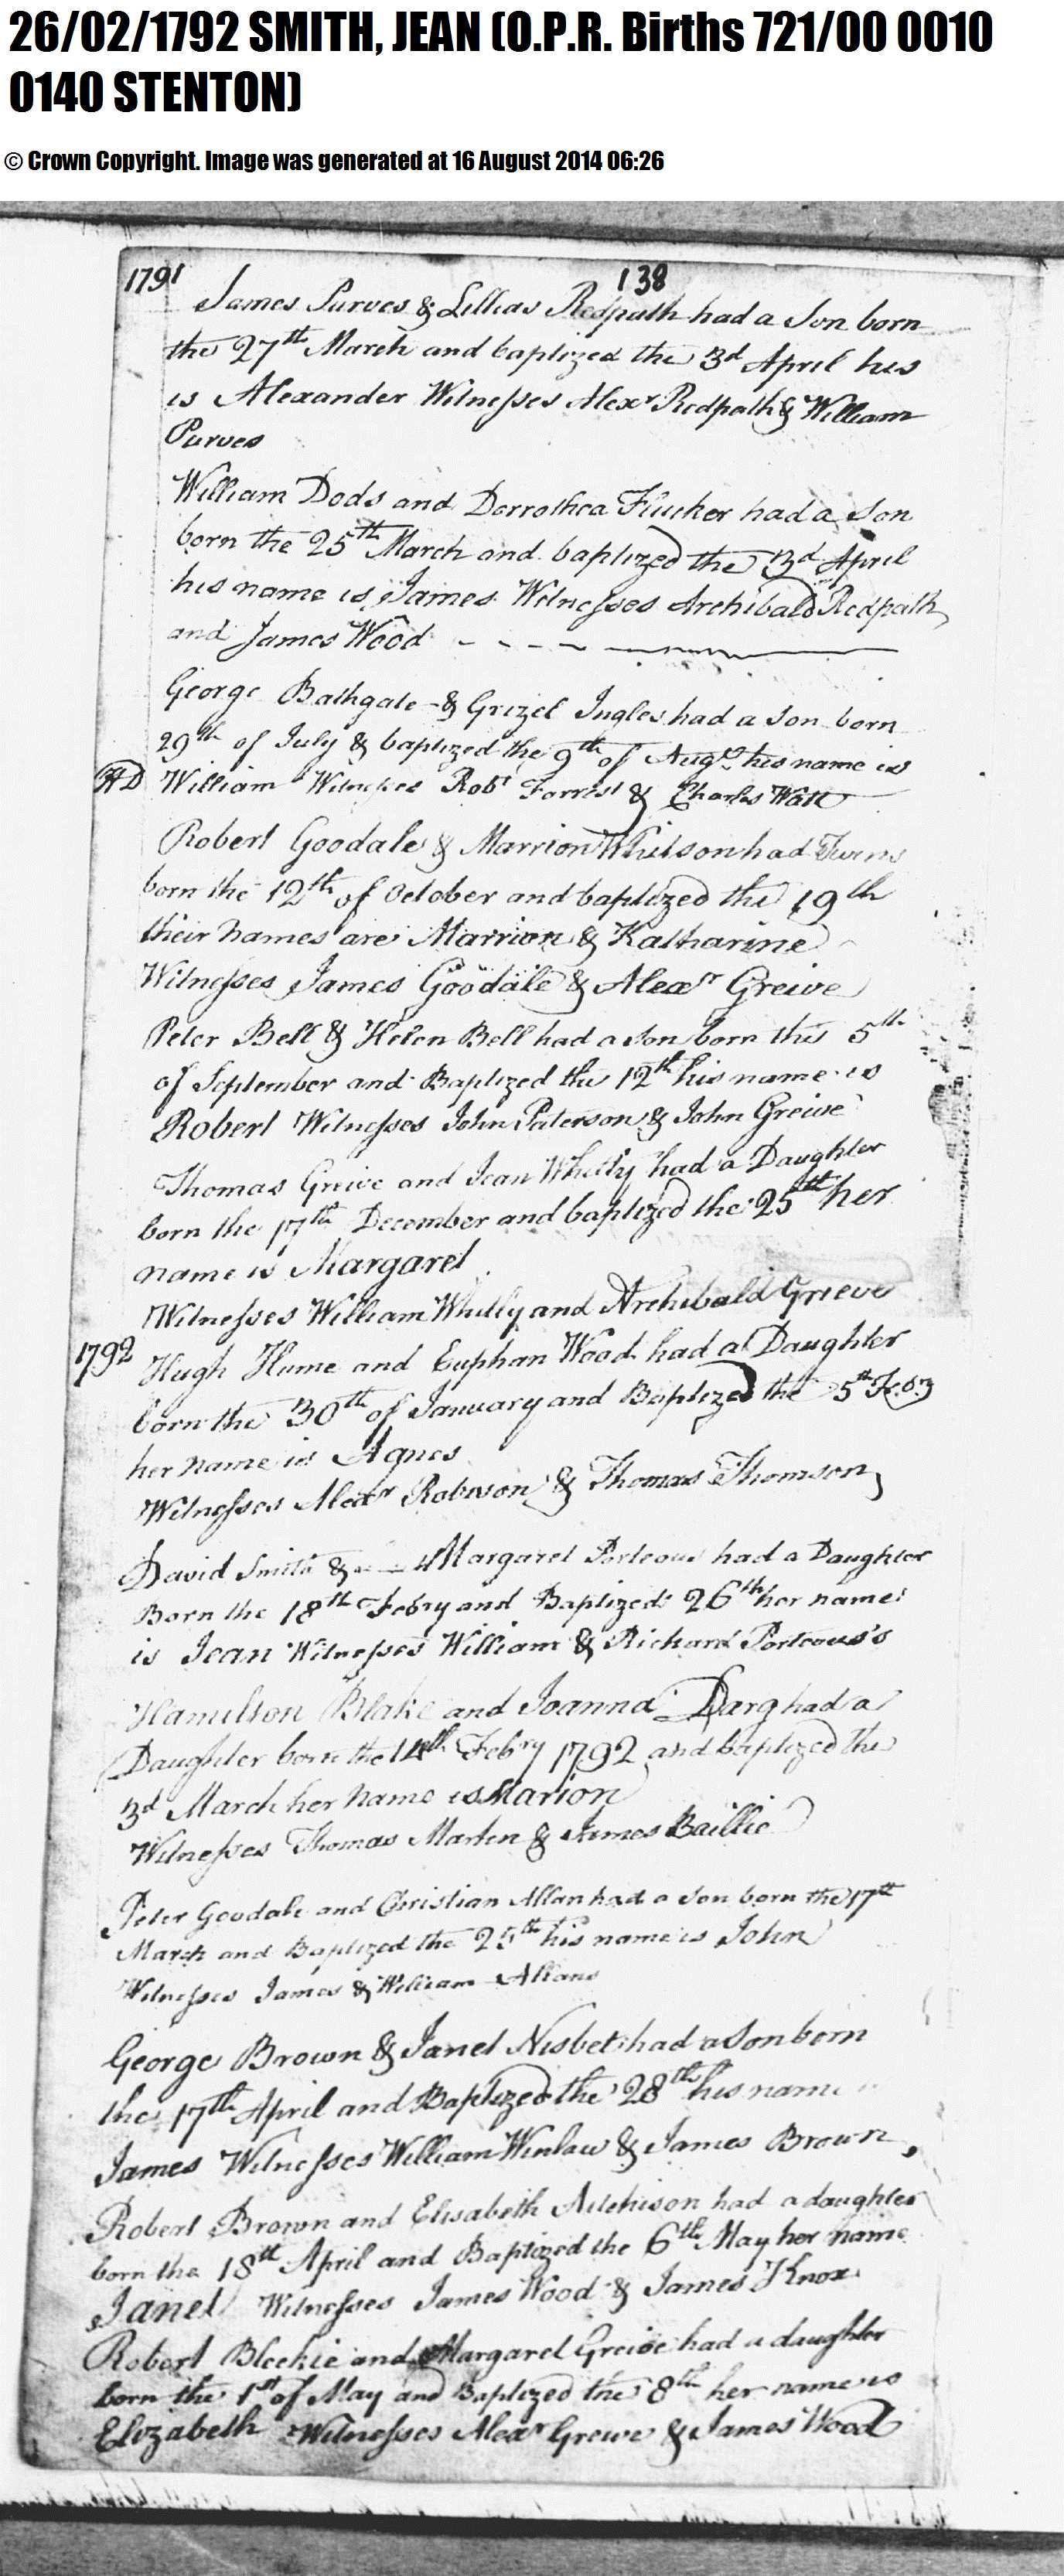 26/02/1792 SMITH, JEAN (O.P.R. Births 721/00 0010
0140 STENTON)
© Crown Copyright. Image was generated at 16 August 2014 06:26
1791 138
James Purves & Lillias Redpath had a Son born
the 27th March and baptized the 3d April his
is Alexander Witnesses Alexr Redpath & William
Purves
William Dods and Dorrothea Flucker had a Son
born the 25th March and baptized the 3d April
his name is James Witnesses Archibald Redpath
and James Wood
George Bathgate & Grizel Ingles had a Son born
29th of July & baptized the 9th of Augt his name is
HD William Witnesses Robt Forrest & Charles Watt
Robert Goodale & Marrion Whitson had Twins
born the 12th of October and baptized the 19th
their names are Marrion & Katharine
Witnesses James Goodale & Alexr Greive
Peter Bell & Helen Bell had a Son born the 5th
of September and Baptized the 12th his name is
Robert Witnesses John Paterson & John Greive
Thomas Greive and Jean Whitly had a Daughter
born the 17th December and baptized the 25th her
name is Margaret
Witnesses William Whitly and Archibald Grieve
1792 Hugh Hume and Euphan Wood had a Daughter
born the 30th of January and Baptized the 5th Feby
her name is Agnes
Witnesses Alexr Robison & Thomas Thomson
David Smith & Margaret Porteous had a Daughter
Born the 18th Febry and Baptized 26th her name
is Jean Witnesses William & Richard Porteous's
Hamilson Blake and Joanna Darg had a
Daughter born the 14th Febry 1792 and baptized the
3d March her name is Marion
Witnesses Thomas Martin & James Baillie
Peter Goodale and Christian Allan had a Son born the 17th
March and Baptized the 25th his name is John
Witnesses James & William Allans
George Brown & Janet Nisbet had a Son born
the 17th April and Baptized the 28th his name
James Witnesses William Winlaw & James Brown
Robert Brown and Elisabeth Aitchison had a daughter
born the 18th April and Baptized the 6th May her name
Janet Witnesses James Wood & James Knox
Robert Bleekie and Margaret Greive had a daughter
born the 1st of May and Baptized the 8th her name is
Elizabeth Witnesses Alexr Greive & James Wood